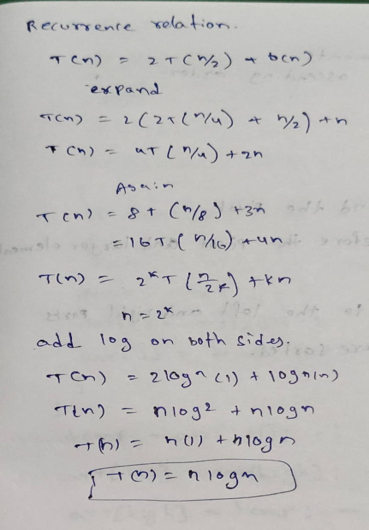 Recurrence relation.
T(n) = 2T(n/2) + O(n)
expand
T(n) = 2(2T(n/4) + n/2) + n
T(n) = 4T(n/4) + 2n
Again
T(n) = 8T(n/8) + 3n
= 16T(n/16) + 4n
T(n) = 2^k T(n/2^k) + kn
n = 2^k
add log on both sides.
T(n) = 2logn (1) + logn(n)
T(n) = nlog2 + nlogn
T(n) = n(1) + nlogn
T(n) = nlogn